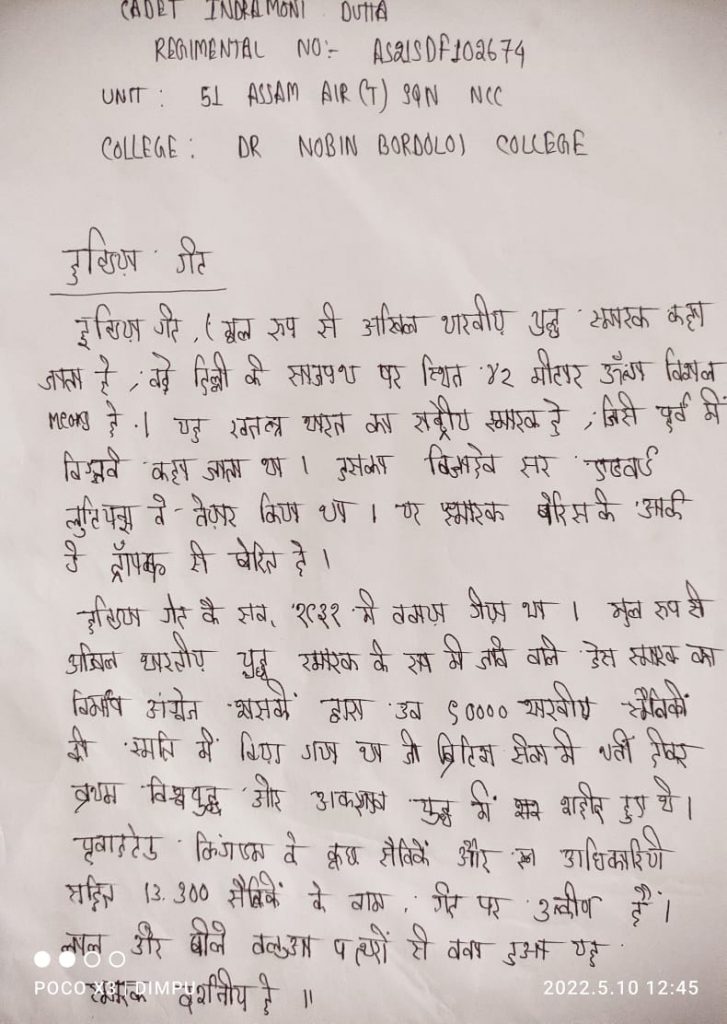 CADET INDRAMONI DUTTA
REGIMENTAL NO:- AS21SDF102674
UNIT : 51 ASSAM AIR(T) SQN NCC
COLLEGE : DR NOBIN BORDOLOI COLLEGE
इण्डिया गेट
इण्डिया गेट, (मुल रुप से अखिल भारतीय युद्ध स्मारक कहा
जाता है, दिल्ली के राजपथ पर स्थित ४२ मीटर ऊँचा विशाल
है । यह स्वतन्त्र भारत का राष्ट्रीय स्मारक है, जिसे पूर्व में
कहा जाता था । इसका डिजाईन सर एडवर्ड
लुटियन्स ने तैयार किया था । यह स्मारक पेरिस के आर्क
डे ट्रॉयम्फ से प्रेरित है ।
इण्डिया गेट के सन्, १९३१ में बनाया गया था । मुल रुप से
अखिल भारतीय युद्ध स्मारक के रूप में जाने वाले इस स्मारक का
निर्माण अंग्रेज शासकों द्वारा उन ९0000 भारतीय सैनिकों
की स्मृति में किया गया था जो ब्रिटिश सेना में भर्ती होकर
प्रथम विश्वयुद्ध और अफगान युद्धों में शहीद हुए थे ।
यूनाइटेड किंगडम के कुछ सैनिकों और अधिकारियों
सहित 13.300 सैनिकों के नाम, गेट पर उत्कीर्ण हैं ।
लाल और पीले बलुआ पत्थरों से बना हुआ यह
स्मारक दर्शनीय है ॥
POCO X3 | DIMPU
2022.5.10 12:45